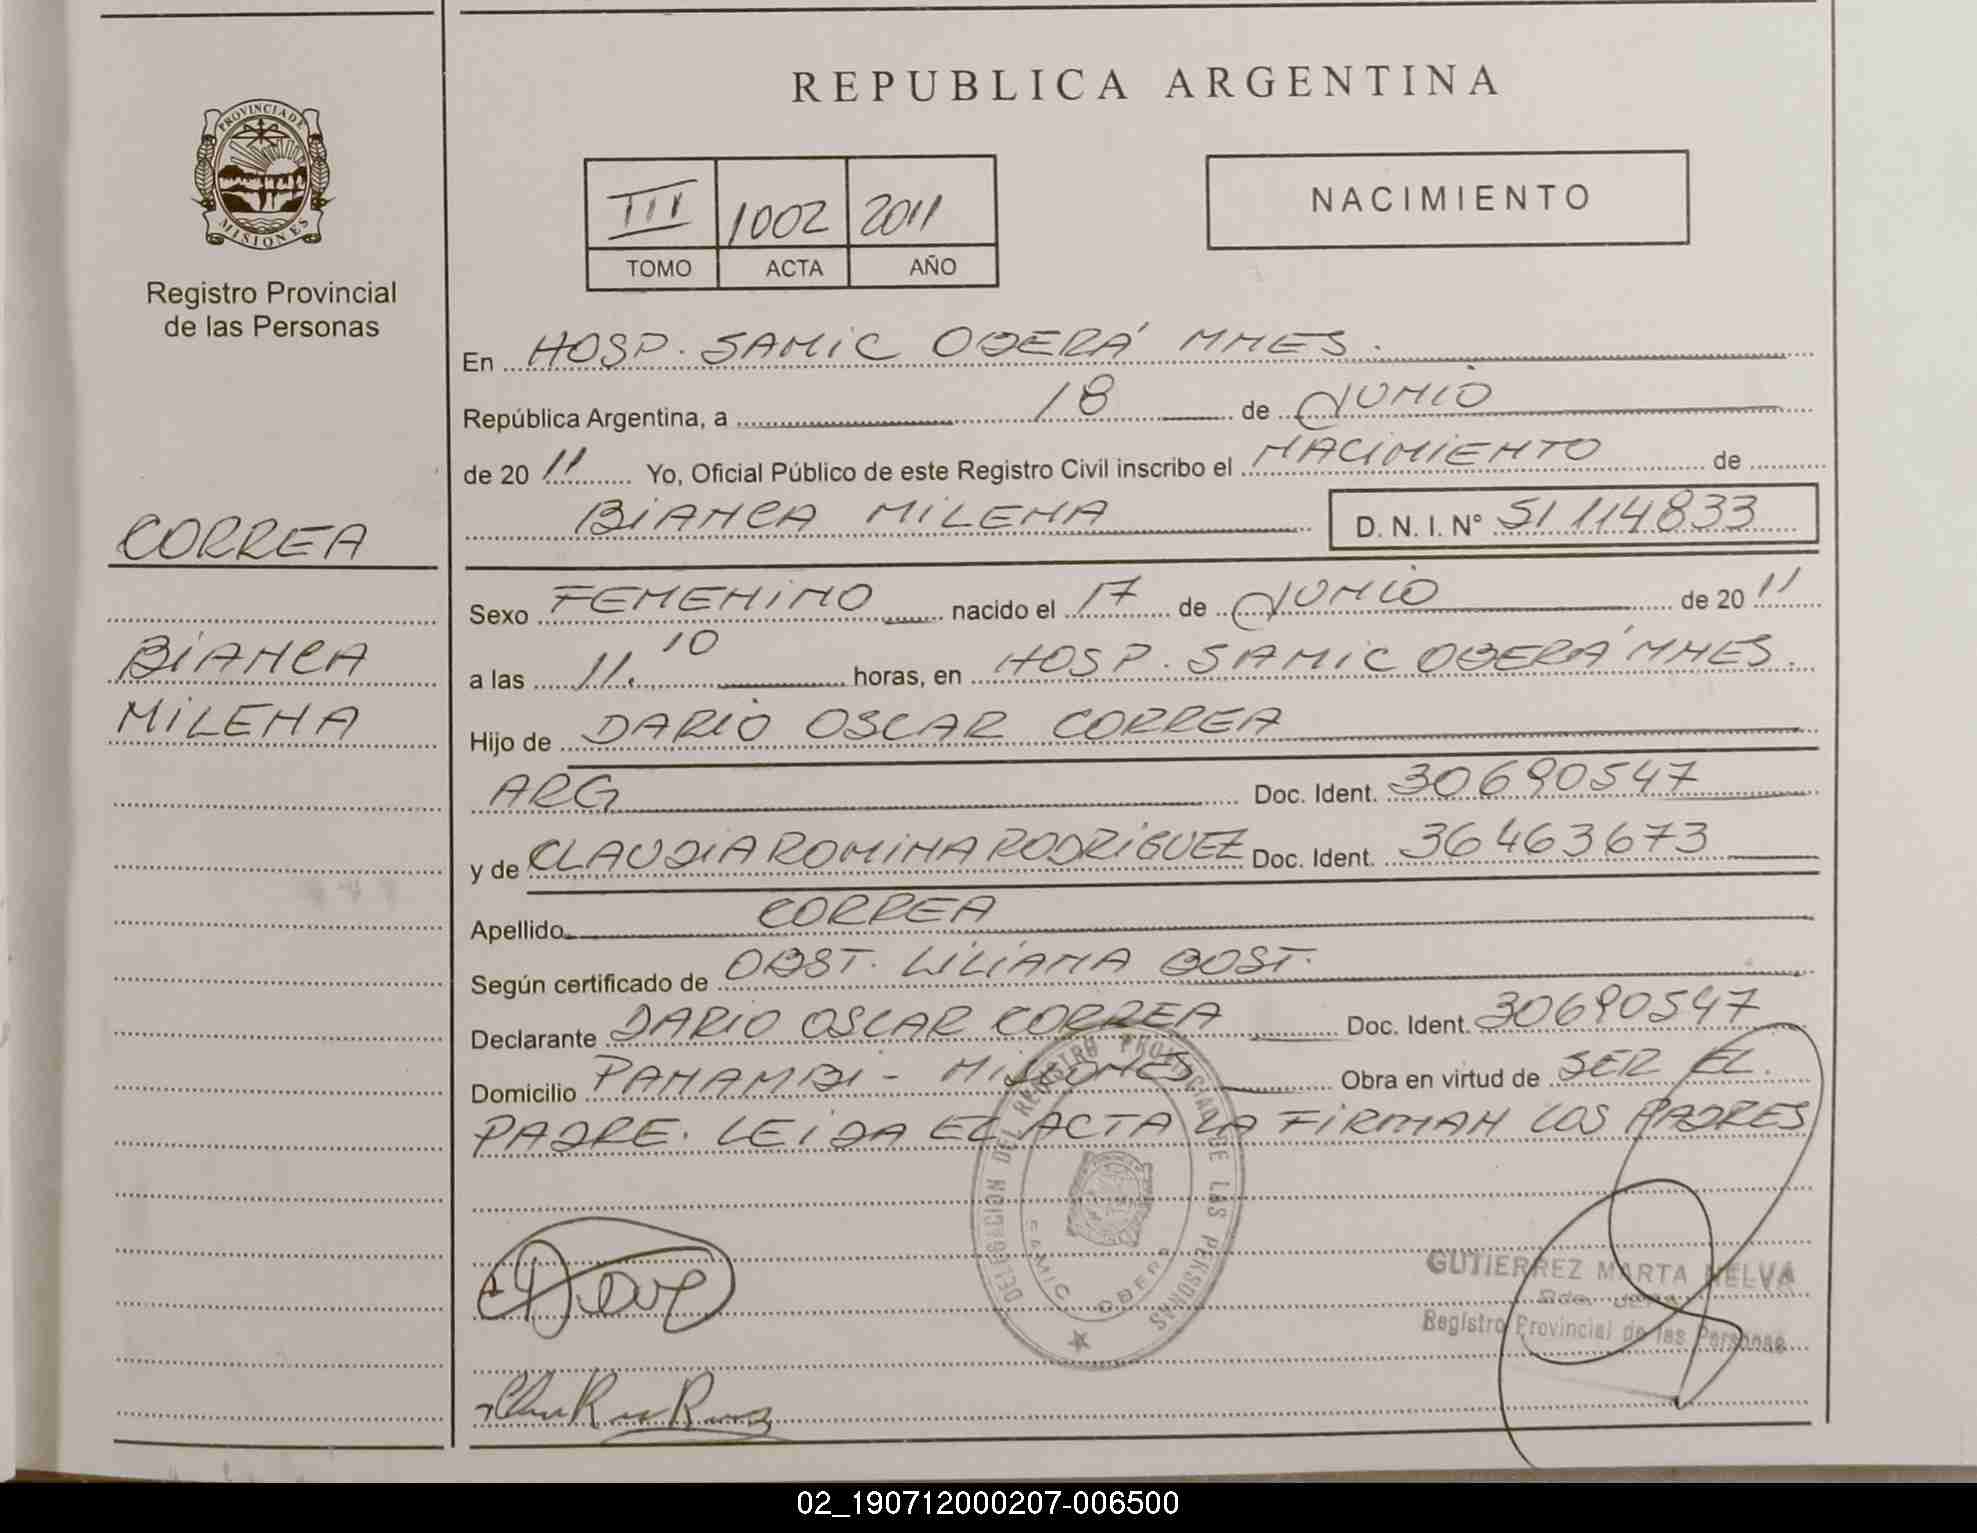 REPUBLICA ARGENTINA
PROVINCIA DE
MISIONES
Registro Provincial
de las Personas
III 1002 2011
TOMO ACTA AÑO
NACIMIENTO
En HOSP. SAMIC OBERÁ MNES.
República Argentina, a 18 de JUNIO
de 2011 Yo, Oficial Público de este Registro Civil inscribo el NACIMIENTO de
BIANCA MILENA D. N. I. N° 51114833
CORREA
BIANCA
MILENA
Sexo FEMENINO nacido el 17 de JUNIO de 2011
a las 11.10 horas, en HOSP. SAMIC OBERÁ MNES.
Hijo de DARIO OSCAR CORREA
ARG Doc. Ident. 30690547
y de CLAUDIA ROMINA RODRIGUEZ Doc. Ident. 36463673
Apellido CORREA
Según certificado de OBST. LILIANA BOST.
Declarante DARIO OSCAR CORREA Doc. Ident. 30690547
Domicilio PANAMBI - MISIONES Obra en virtud de SER EL
PADRE. LEIDA EL ACTA LA FIRMAN LOS PADRES
DELEGACION DEL REGISTRO PROVINCIAL DE LAS PERSONAS
SAMIC OBERA
GUTIERREZ MARTA NELVA
Registro Provincial de las Personas
02_190712000207-006500